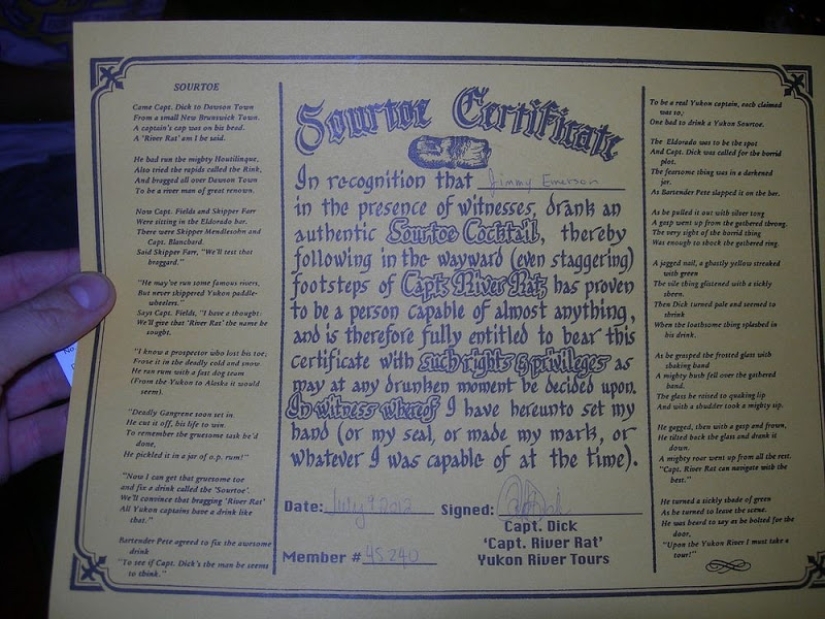 SOURTOE
Came Capt. Dick to Dawson Town
From a small New Brunswick Town.
A captain's cap was on his head.
A 'River Rat' am I he said.
He had run the mighty Hootilinqua,
Also tried the rapids called the Rink,
And bragged all over Dawson Town
To be a river man of great renown.
Now Capt. Fields and Skipper Farr
Were sitting in the Eldorado bar.
There were Skipper Mendlesohn and
Capt. Blanchard.
Said Skipper Farr, "We'll test that
braggard."
"He may've run some famous rivers,
But never skippered Yukon paddle-
wheelers."
Says Capt. Fields, "I have a thought-
We'll give that 'River Rat' the name he
sought.
"I know a prospector who lost his toe;
Froze it in the deadly cold and snow
He ran rum with a fast dog team
(From the Yukon to Alaska it would
seem).
"Deadly Gangrene soon set in.
He cut it off, his life to win.
To remember the gruesome task he'd
done,
He pickled it in a jar of o.p. rum!"
"Now I can get that gruesome toe
and fix a drink called the 'Sourtoe'.
We'll convince that bragging 'River Rat'
All Yukon captains have a drink like
that."
Bartender Pete agreed to fix the awesome
drink
"To see if Capt. Dick's the man he seems
to think."
Sourtoe Certificate
In recognition that Jimmy Emerson
in the presence of witnesses, drank an
authentic Sourtoe Cocktail, thereby
following in the wayward (even staggering)
footsteps of Capt. River Rat, has proven
to be a person capable of almost anything,
and is therefore fully entitled to bear this
certificate with such rights & privileges as
may at any drunken moment be decided upon.
In witness whereof I have hereunto set my
hand (or my seal, or made my mark, or
whatever I was capable of at the time).
Date: July 9 2012 Signed:
Capt. Dick
'Capt. River Rat'
Member # 45240 Yukon River Tours
To be a real Yukon captain, each claimed
was so;
One had to drink a Yukon Sourtoe.
The Eldorado was to be the spot
And Capt. Dick was called for the horrid
plot.
The fearsome thing was in a darkened
jar.
As Bartender Pete slapped it on the bar.
As he pulled it out with silver tong
A gasp went up from the gathered throng.
The very sight of the horrid thing
Was enough to shock the gathered ring.
A jagged nail, a ghastly yellow streaked
with green
The vile thing glistened with a sickly
sheen.
Then Dick turned pale and seemed to
shrink
When the loathsome thing splashed in
his drink.
As he grasped the frosted glass with
shaking hand
A mighty hush fell over the gathered
band.
The glass he raised to quaking lip
And with a shudder took a mighty sip.
He gagged, then with a gasp and frown,
He tilted back the glass and drank it
down.
A mighty roar went up from all the rest.
"Capt. River Rat can navigate with the
best."
He turned a sickly shade of green
As he turned to leave the scene.
He was heard to say as he bolted for the
door,
"Upon the Yukon River I must take a
tour!"